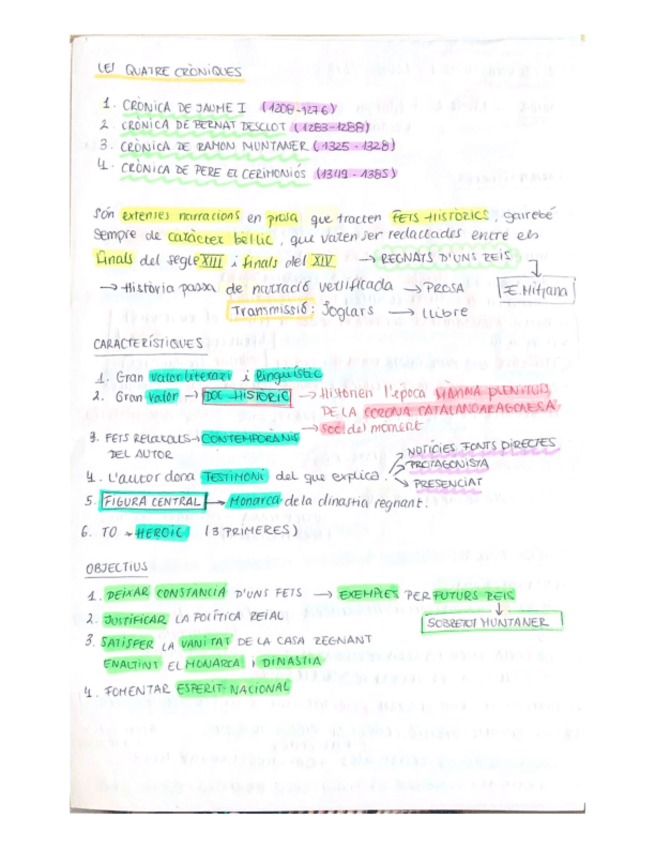 LES QUATRE CRÒNIQUES
1. CRÒNICA DE JAUME I (1208-1276)
2. CRÒNICA DE BERNAT DESCLOT (1283-1288)
3. CRÒNICA DE RAMON MUNTANER (1325-1328)
4. CRÒNICA DE PERE EL CERIMONIÓS (1349-1385)
Són extenses narracions en prosa que tracten FETS HISTÒRICS, gairebé
sempre de caràcter bèl·lic, que varen ser redactades entre els
finals del segle XIII i finals del XIV → REGNATS D'UNS REIS
→ Història passa de narració versificada → PROSA
E. Mitjana
Trammissió: Joglars → Llibre
CARACTERÍSTIQUES
1. Gran valor literari i lingüístic
2. Gran valor → DOC HISTÒRIC → Historien l'època MÀXIMA PLENITUD
DE LA CORONA CATALANOARAGONESA
→ soc del moment
3. FETS RELATATS → CONTEMPORANIS
DEL AUTOR
NOTÍCIES FONTS DIRECTES
4. L'autor dona TESTIMONI del que explica
PROTAGONISTA
PRESENCIAT
5. FIGURA CENTRAL → Monarca de la dinastia regnant.
6. TO → HEROIC (3 PRIMERES)
OBJECTIUS
1. DEIXAR CONSTÀNCIA D'UNS FETS → EXEMPLES PER FUTURS REIS
2. JUSTIFICAR LA POLÍTICA REIAL
SOBRETOT MUNTANER
3. SATISFER LA VANITAT DE LA CASA REGNANT
ENALTINT EL MONARCA I DINASTIA
4. FOMENTAR ESPERIT NACIONAL